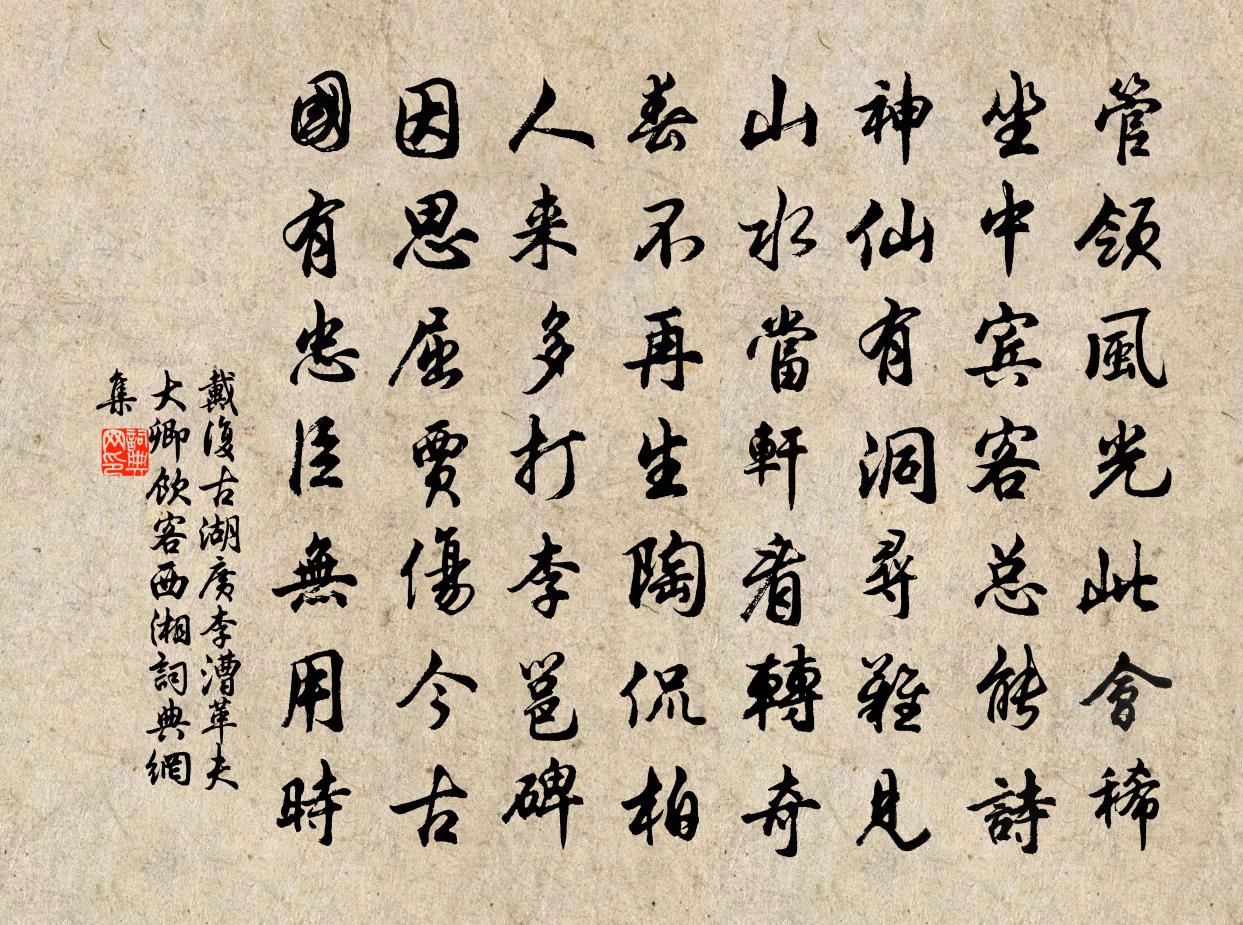 管領風光此會稀
坐中宾客总能詩
神仙有洞尋難見
山水當軒看轉奇
春不再生陶侃柏
人来多打李邕碑
因思屈賈傷今古
國有忠臣無用時
戴復古湖廣李漕革夫
大卿飲客西湘詞典網
集
詞典
网印